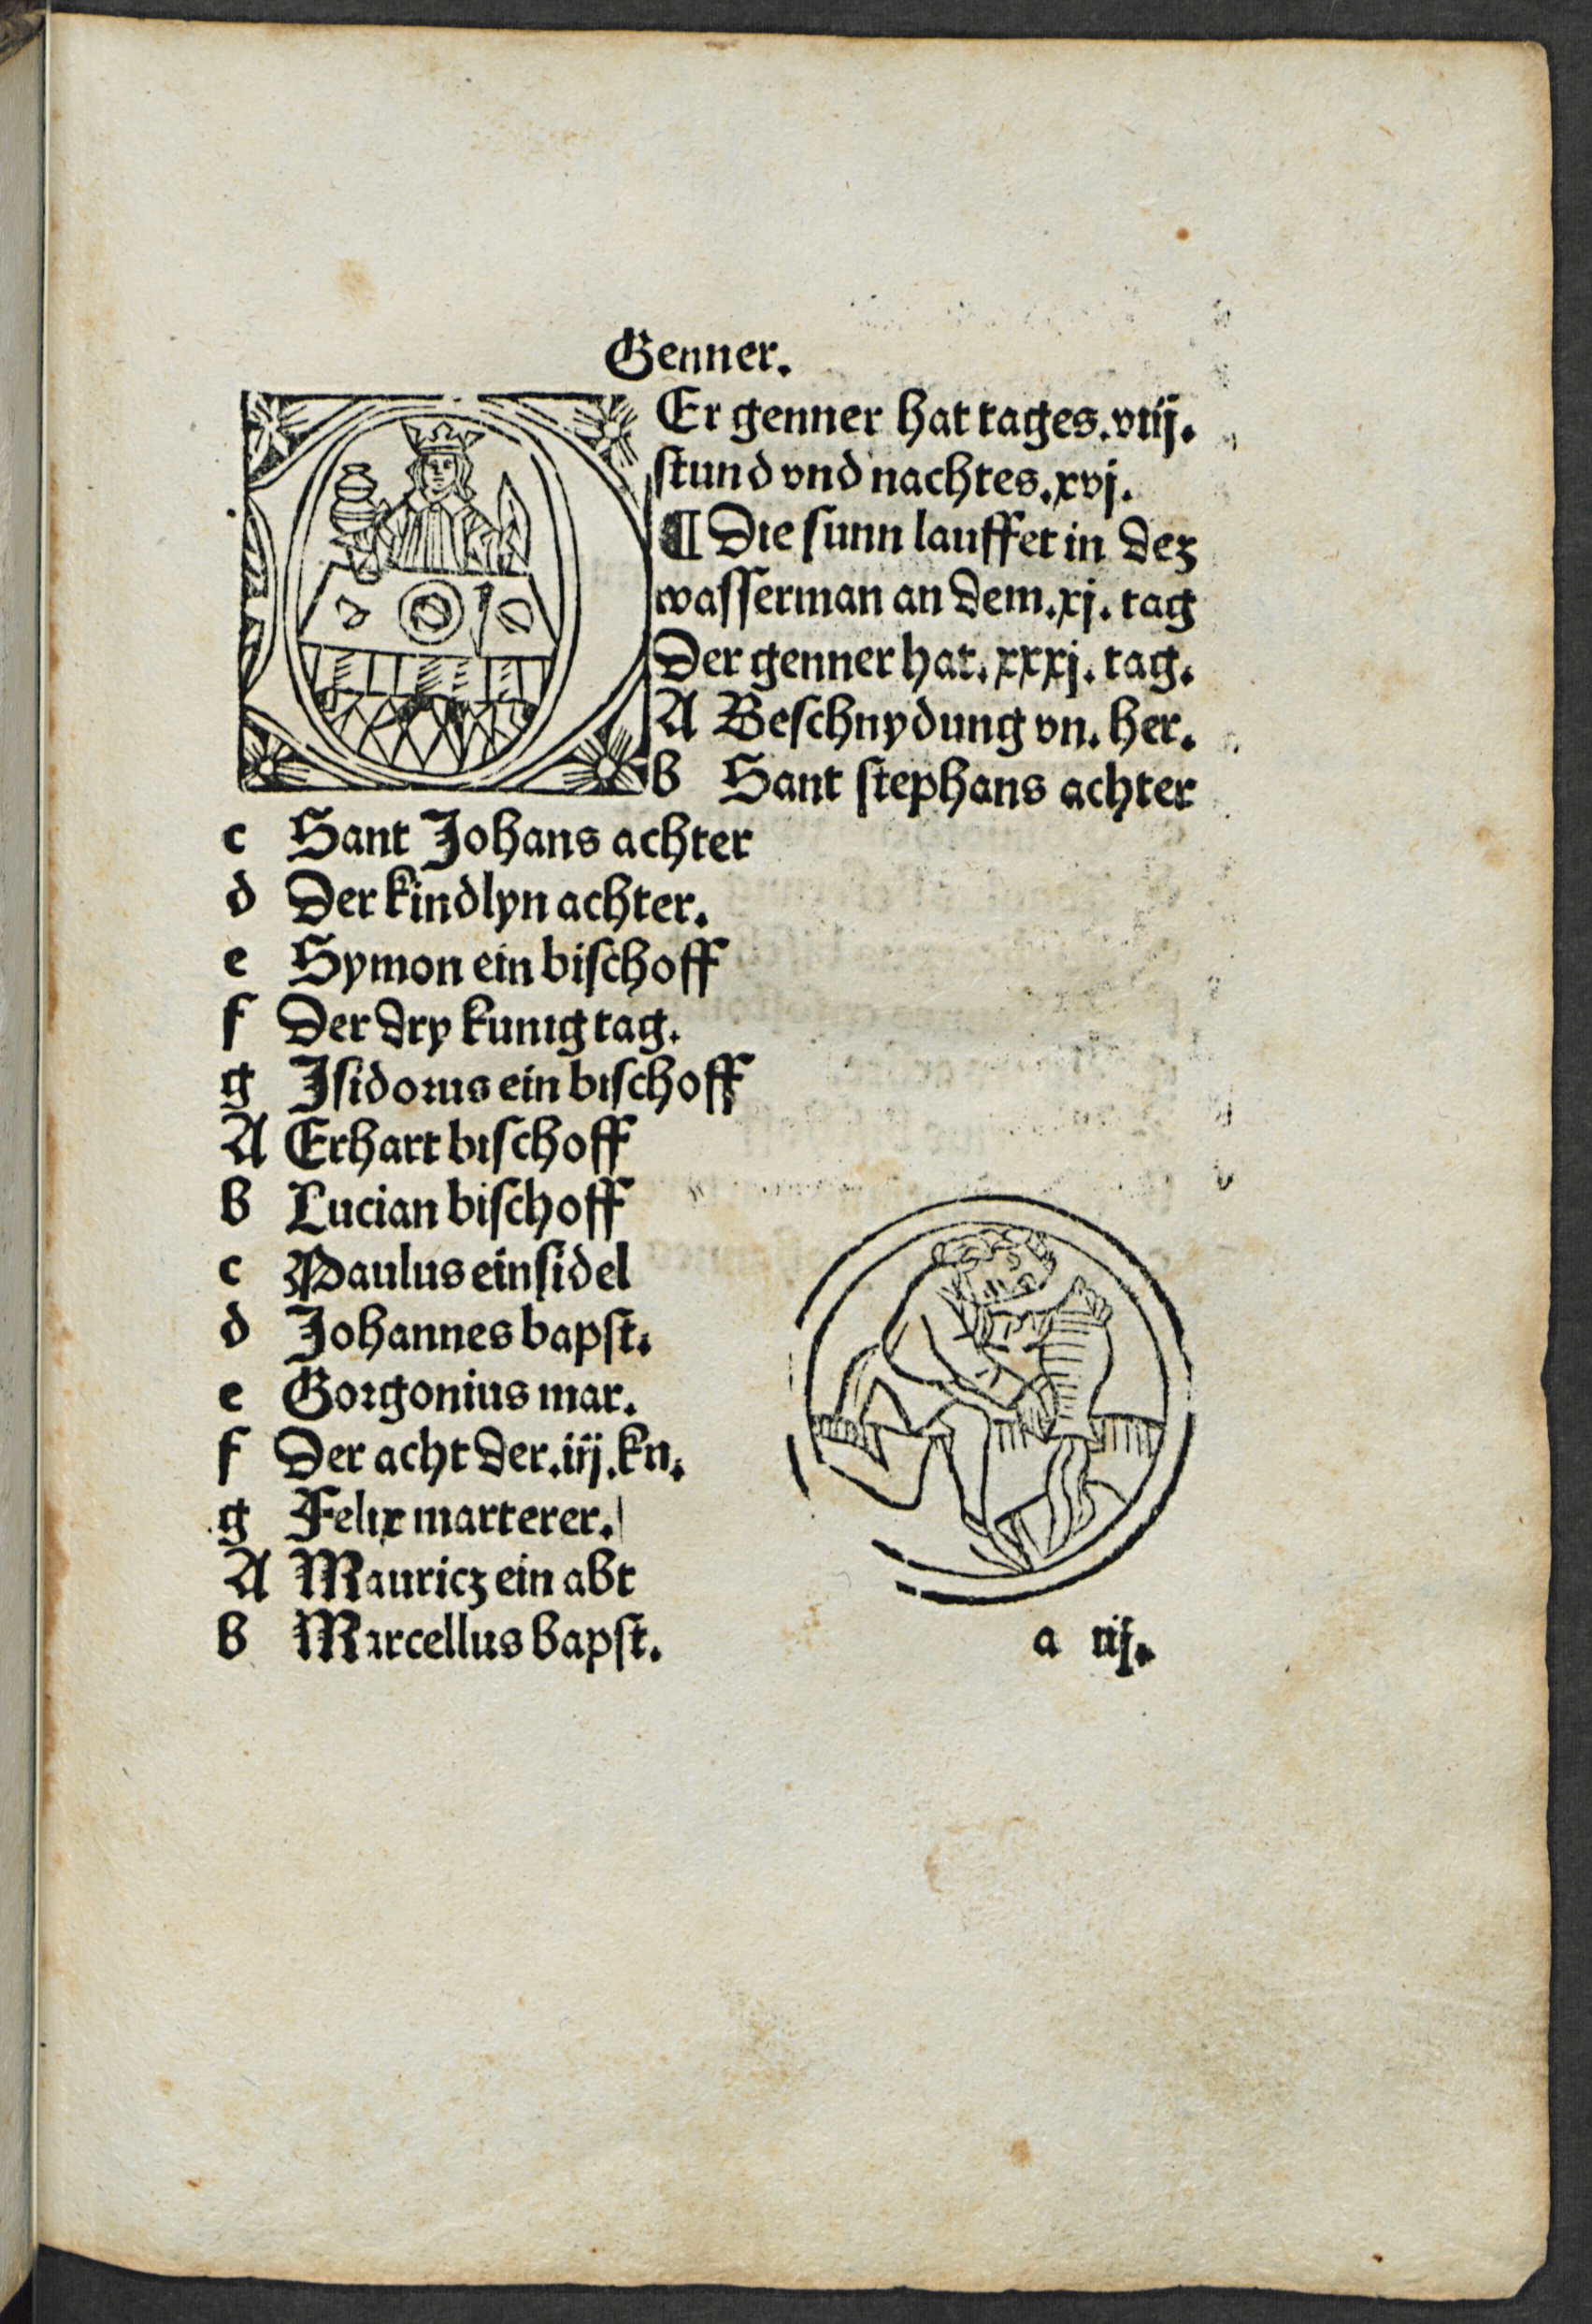 Genner.
Er genner hat tages.viij.
stund vnd nachtes.xvj.
¶ Die sunn lauffet in dez
wasserman an dem.xj. tag
Der genner hat.xxxj. tag.
A Beschnydung vn. her.
b Sant stephans achter
c Sant Johans achter
d Der kindlyn achter.
e Symon ein bischoff
f Der dry kunig tag.
g Isidorus ein bischoff
A Erhart bischoff
b Lucian bischoff
c Paulus einsidel
d Johannes bapst.
e Gorgonius mar.
f Der acht der.iij.kn.
g Felix marterer.
A Mauricz ein abt
b Marcellus bapst.
a iij.